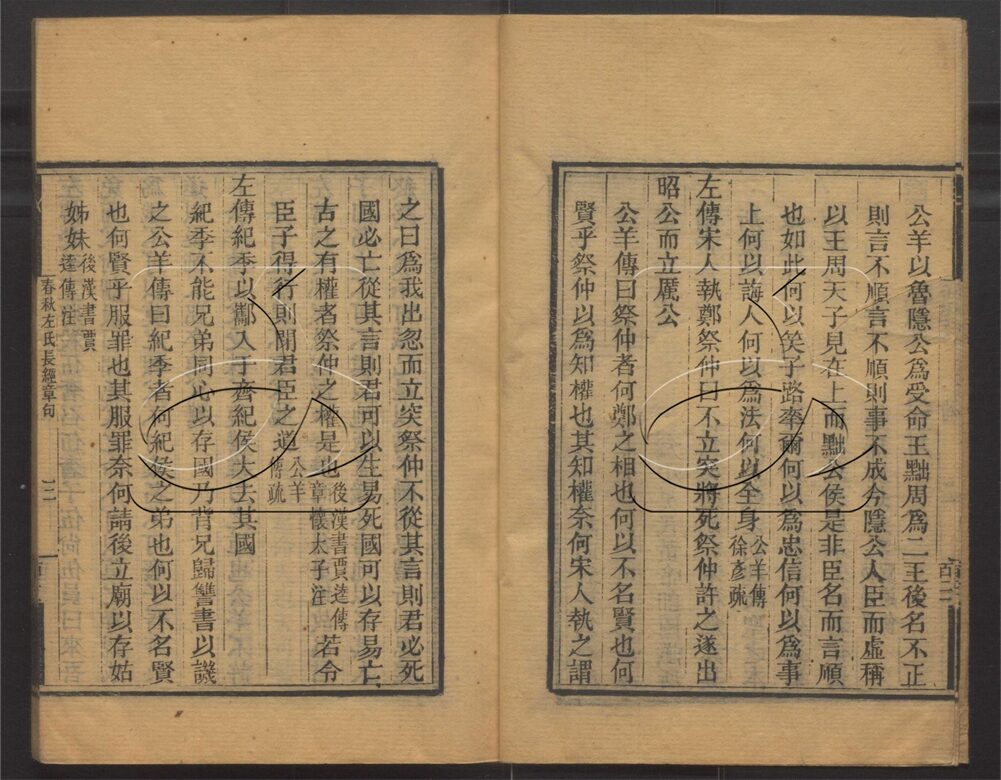 公羊以魯隱公爲受命王黜周爲二王後名不正
則言不順言不順則事不成今隱公人臣而虛稱
以王周天子見在上而黜公侯是非臣名而言順
也如此何以笑子路率爾何以爲忠信何以爲事
上何以誨人何以爲法何以全身公羊傳徐彥疏
左傳宋人執鄭祭仲曰不立突將死祭仲許之遂出
昭公而立厲公
公羊傳曰祭仲者何鄭之相也何以不名賢也何
賢乎祭仲以爲知權也其知權奈何宋人執之謂
之曰爲我出忽而立突祭仲不從其言則君必死
國必亡從其言則君可以生易死國可以存易亡
古之有權者祭仲之權是也後漢書賈逵傳章懷太子注若令
臣子得行則閉君臣之道公羊傳疏
左傳紀季以酅入于齊紀侯大去其國
紀季不能兄弟同心以存國乃背兄歸讐書以譏
之公羊傳曰紀季者何紀侯之弟也何以不名賢
也何賢乎服罪也其服罪奈何請後立廟以存姑
姊妹後漢書賈逵傳注
春秋左氏長經章句
三